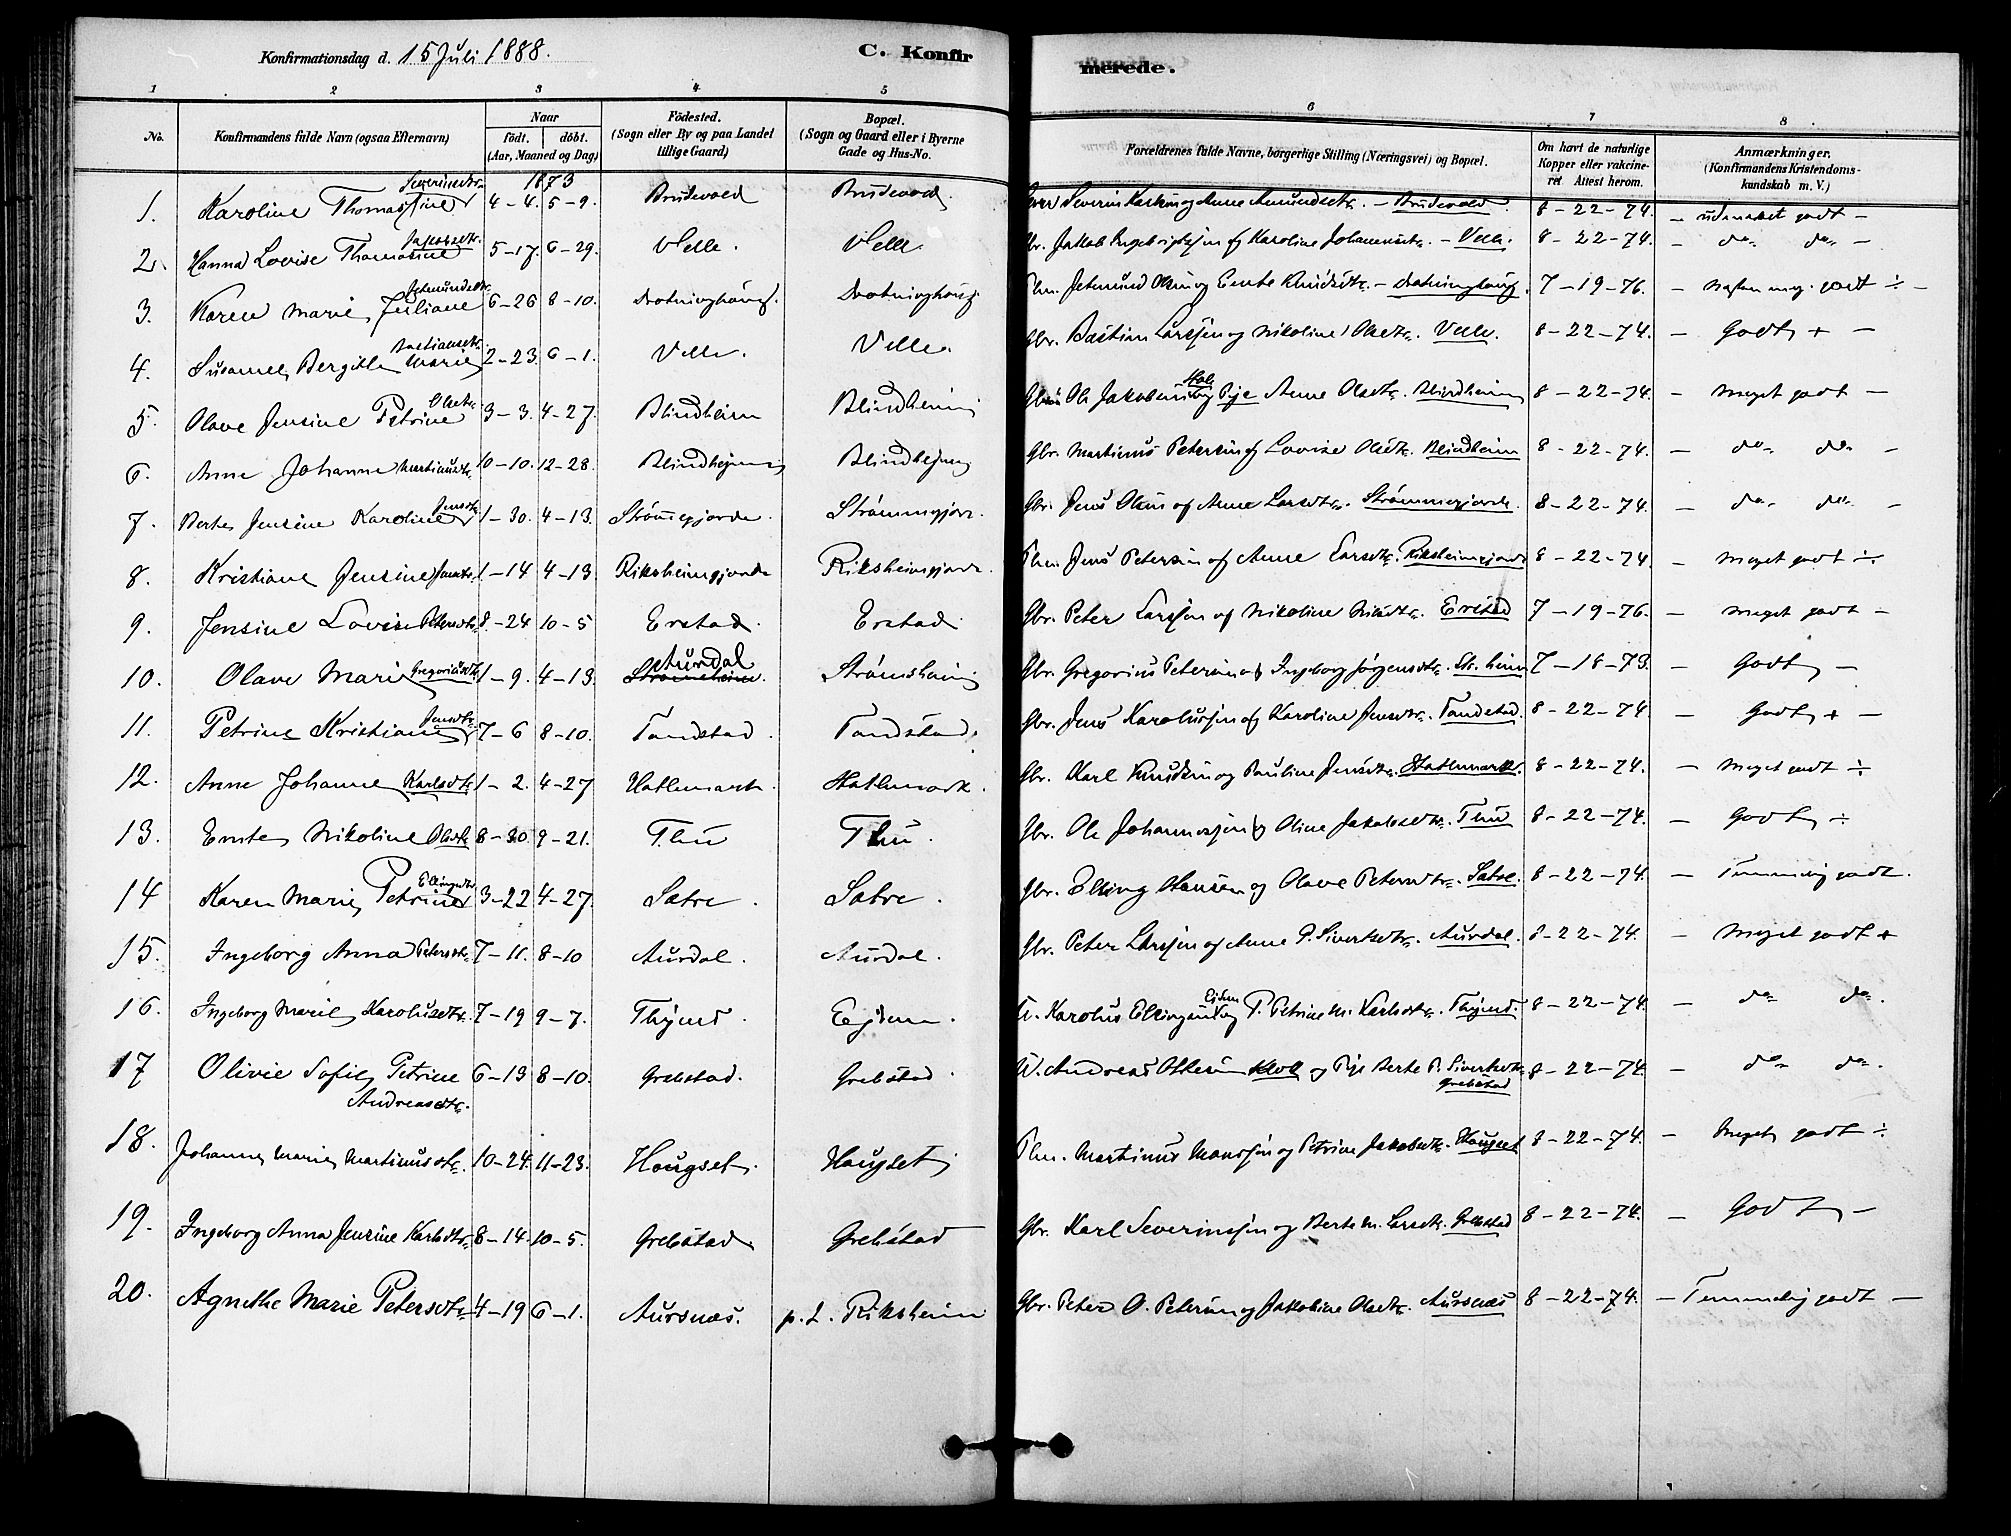 Konfirmationsdag d. 15 Juli 1888.
C. Konfirmerede.
1 2 3 4 5 6 7 8
No. Konfirmandens fulde Navn (ogsaa Efternavn) Naar födt. döbt. (Aar, Maaned og Dag) Födested. (Sogn eller By og paa Landet tillige Gaard) Bopæl. (Sogn og Gaard eller i Byerne Gade og Hus-No. Forældrenes fulde Navne, borgerlige Stilling (Næringsvei) og Bopæl. Om havt de naturlige Kopper eller vakcineret. Attest herom. Anmærkninger. (Konfirmandens Kristendomskundskab m. V.)
1873
1. Karoline Thomassine Severinsdtr. 4-4. 5-9. Brudevold Brudevold. Severin Karlsen og Anne Amundsdtr. - Brudevold. 8-22-74. - udmærket godt -
2. Hanna Lovise Thomasine Jakobsdtr. 5-17. 6-29. Velle. Velle. Gbr. Jakob Ingebrigtsen og Karoline Johannesdtr. - Velle. 8-22-74. - do do -
3. Karen Marie Juliane Jetmundsdtr. 6-26 8-10. Drotninghaug. Drotninghaug. Plm. Jetmund Olsen og Ernte Knudsdtr. - Drotninghaug. 7-19-76. - næsten meg. godt ÷ -
4. Susanne Bergitte Marie Bastiansdtr. 2-23. 6-1. Velle. Velle. Gbr. Bastian Larssen og Nikoline Olsdtr. Velle. 8-22-74. - Godt + -
5. Olave Jensine Petrine Olsdtr. 3-3. 4-27. Blindheim Blindheim Ole Jakobsen Hole og Pige Anne Olsdtr. Blindheim 8-22-74. - meget godt -
6. Anne Johanne Martinusdtr. 10-10. 12-28. Blindhejm Blindhejm Gbr. Martinus Petersen og Lovise Olsdtr. Blindheim 8-22-74. - do do -
7. Berte Jensine Karoline Jensdtr. 1-30. 4-13. Strömmegjerde. Strømmegjerde. Gbr. Jens Olsen og Anne Larsdtr. Strømmegjerde. 8-22-74. - do do -
8. Kristiane Jensine Jensdtr. 1-14 4-13 Riksheimgjerde Riksheimgjerde. Plm. Jens Petersen og Anne Larsdtr. Riksheimgjerde 8-22-74. - meget godt ÷
9. Jensine Lovise Petersdtr. 8-24 10-5 Erstad. Erstad. Gbr. Peter Larssen og Nikoline Nilsdtr. Erstad 7-19-76. - meget godt -
10. Olave Marie Gregoriusdtr. 1-9. 4-13. Strömsheim. Aurdal Strømsheim Gbr. Gregorius Petersen og Ingeborg Jørgensdtr. Str. heim 7-18-73. - Godt -
11. Petrine Kristiane Jensdtr. 7-6 8-10. Tandstad. Tandstad. Gbr. Jens Karolussen og Karoline Jensdtr. Tandstad. 8-22-74. - Godt + -
12. Anne Johanne Karlsdtr. 1-2. 4-27. Hatlemark. Hatlemark. Gbr. Karl Knudsen og Pauline Jensdtr. Hatlemark. 8-22-74. - meget godt ÷
13. Ernte Nikoline Olsdtr. 8-30. 9-21. Thu Thu. Gbr. Ole Johannessen og Oline Jakobsdtr. Thu 8-22-74. - Godt ÷
14 Karen Marie Petrine Ellingsdtr. 3-22 4-27. Sætre. Sætre. Gbr. Elling Hansen og Olave Petersdtr. Sætre. 8-22-74. - Temmelig godt.
15. Ingeborg Anna Petersdtr. 7-11. 8-10 Aurdal. Aurdal. Gbr. Peter Larssen og Anne P. Sivertsdtr. Aurdal. 8-22-74. - meget godt +
16. Ingeborg Marie Karolusdtr. 7-19 9-7. Thynes. Ejdem. U. Karolus Ellingsen Eidem og P. Petrine M. Karlsdtr. Thynes. 8-22-74. - do do.
17 Olivie Sofie Petrine Andreasdtr. 6-13 8-10. Grebstad. Grebstad. U. Andreas Ottesen og Pige Berte P. Sivertsdtr. Grebstad 8-22-74. - do do.
18. Johanne Marie Martinusdtr. 10-24. 11-23. Hougset. Haugset Plm. Martinus Monssen og Petrine Jakobsdtr. Haugset 8-22-74. - Meget godt ÷
19. Ingeborg Anna Jensine Karlsdtr. 8-14. 10-5. Grebstad. Grebstad Gbr. Karl Severinssen og Berte M. Larsdtr. Grebstad 8-22-74. - Godt -
20. Agnethe Marie Petersdtr. 4-19 6-1. Aursnes. p. t. Riksheim Gbr. Peter O. Petersen og Jakobine Olsdtr. Aursnæs 8-22-74. - Temmelig godt -